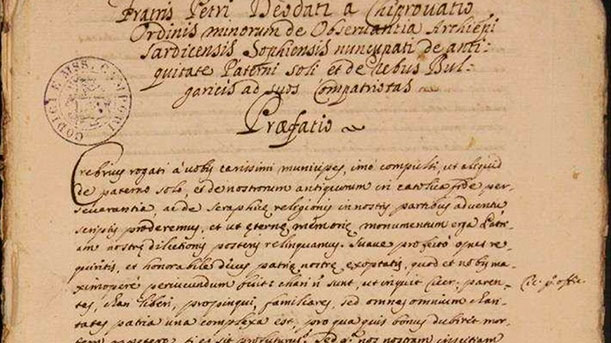 Fratris Petri Deodati a Chiprovatio
Ordinis minorum de Observantia Archiepi
Sardicensis Sophiensis nuncupati de anti-
quitate Paterni soli et de rebus Bul-
garicis ad suos Compatriotas
Præfatio
CODICI E MSS. CAMPORI
Crebrius rogati á vobis carissimi municipes, imo compulsi, ut aliquid
de paterno solo, et de nostrorum antiquorum in catolica fide per-
severantia, ac de seraphicæ religionis in nostris partibus adventu
scriptis proderemus, et ut æternæ memoriæ monumentum erga Patri-
am nostræ dilectionis posteris relinquamus. Suave profecto opus re-
quiritis, et honorabile decus patriæ nostræ exoptatis, quod et nobis ma-
ximoperé periucundum fuit: chari n sunt, ut inquit Cicer: paren-
tes, chari liberi, propinqui, familiares, sed omnes omnium chari-
tates patria una complexa est, pro qua quis bonus dubitet mor-
Cic. p. offic.